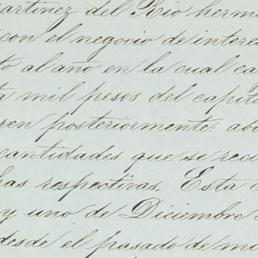 artinez del Rio herma
con el negocio de intere
to al año en la cual ca
ta mil pesos del capita
ren posteriormente: abo
cantidades que se reci
has respectivas. Esta c
y uno de Diciembre
desde el pasado de mi